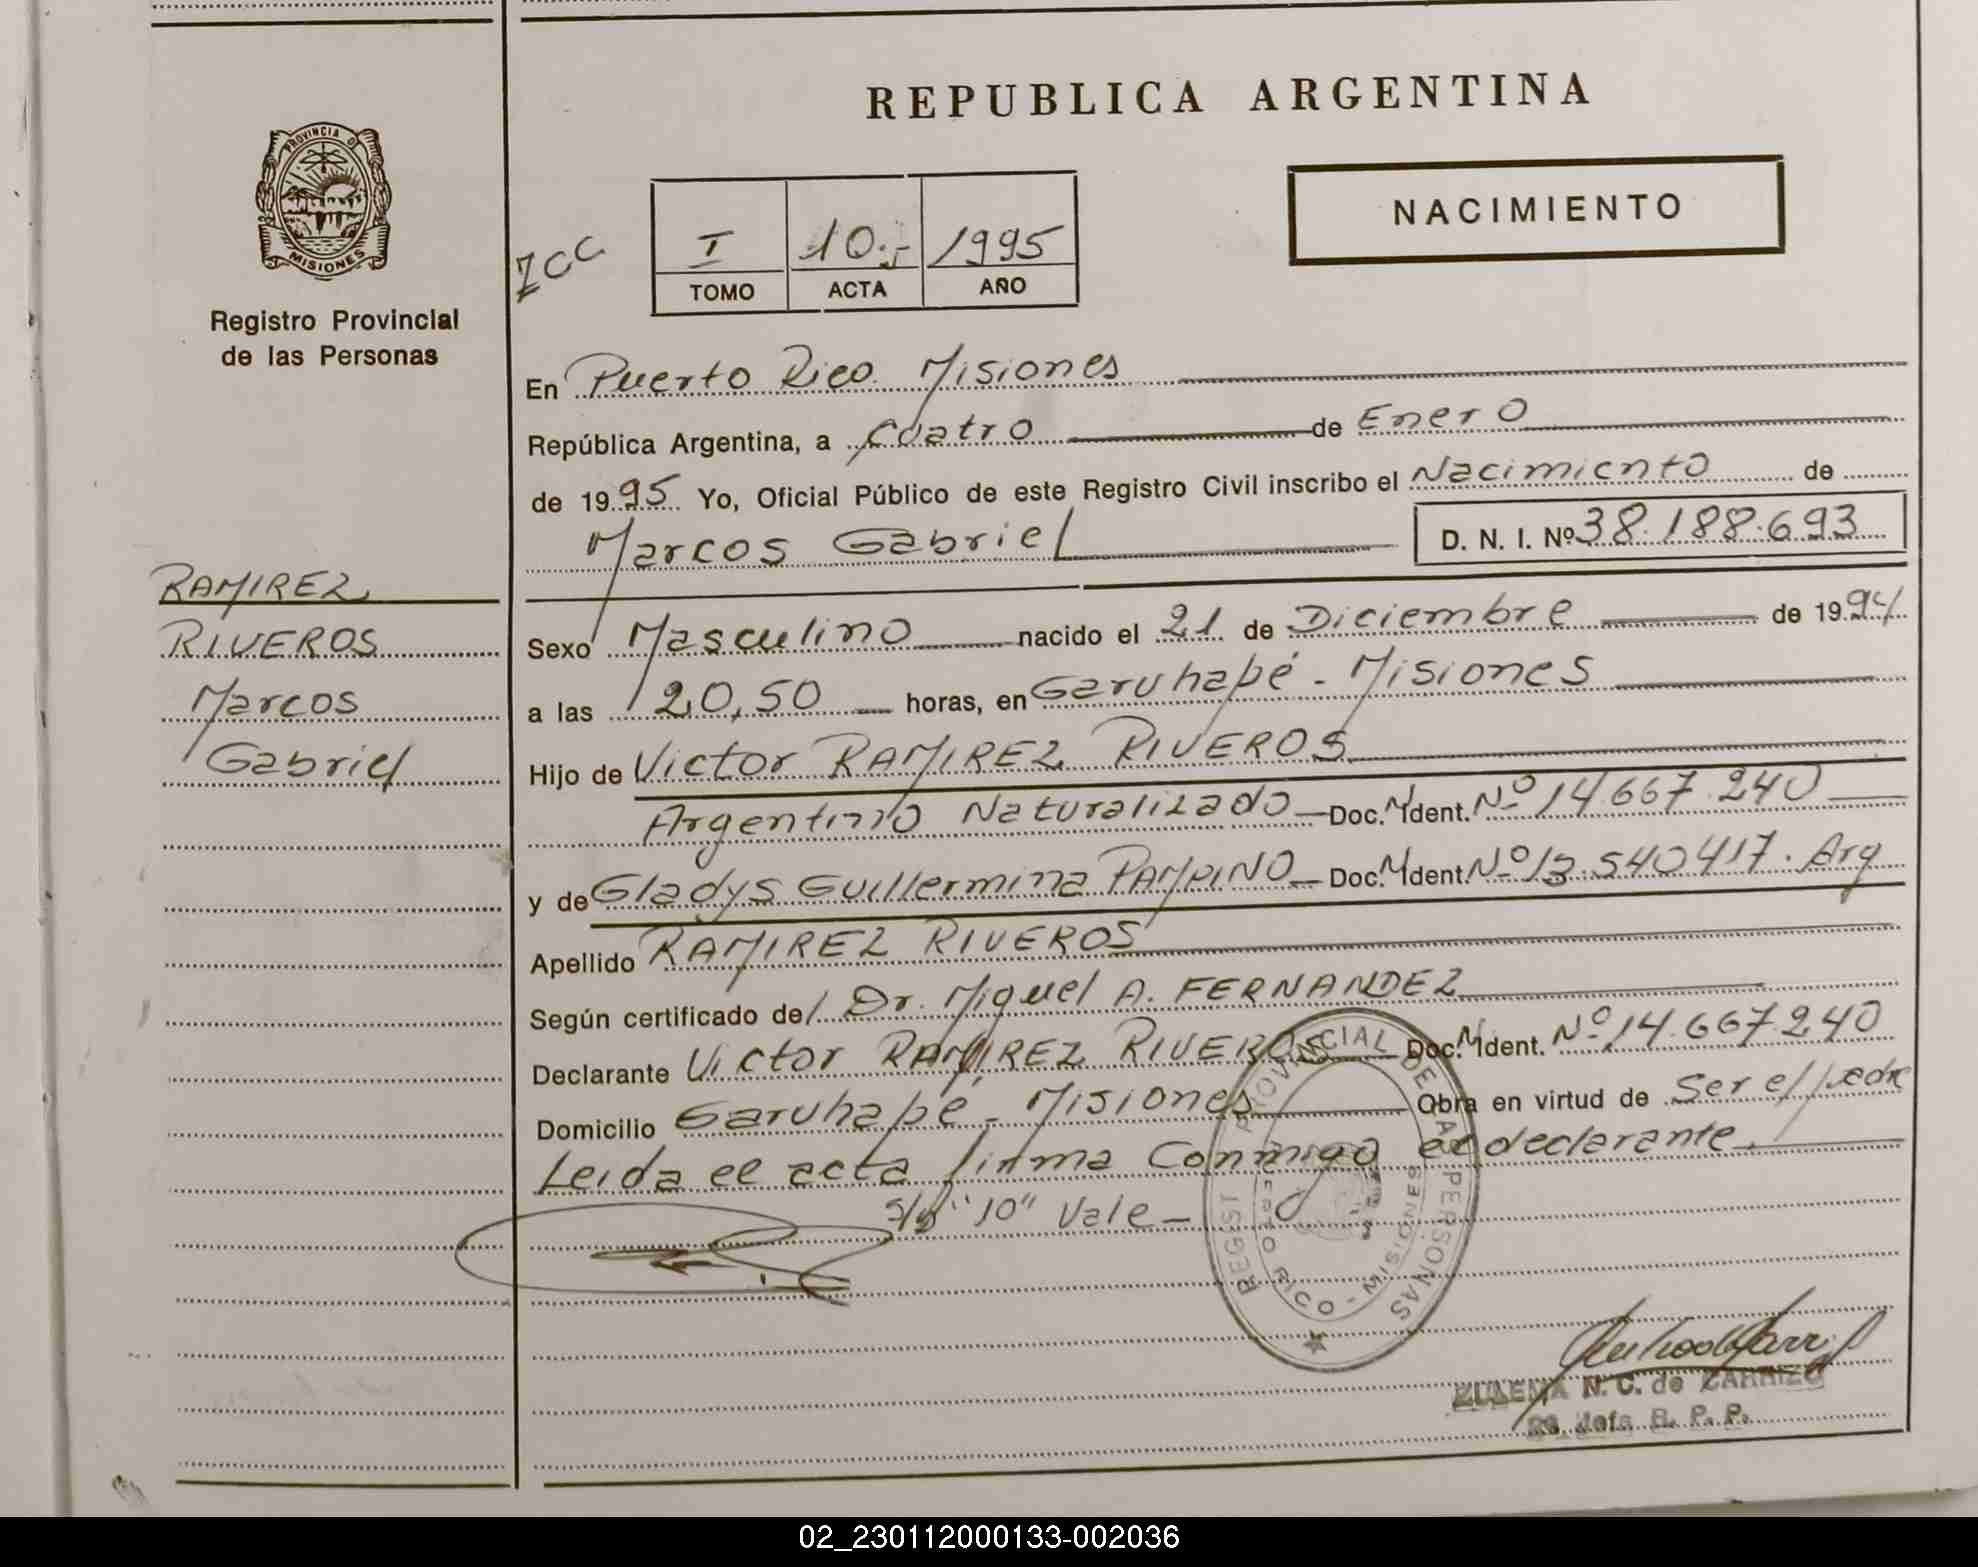 REPUBLICA ARGENTINA
PROVINCIA D
MISIONES
Registro Provincial
de las Personas
RAMIREZ
RIVEROS
Marcos
Gabriel
ZCC
I 10.- 1995
TOMO ACTA AÑO
NACIMIENTO
En Puerto Rico Misiones
República Argentina, a Cuatro de Enero
de 1995 Yo, Oficial Público de este Registro Civil inscribo el Nacimiento de
Marcos Gabriel D. N. I. Nº 38.188.693
Sexo Masculino nacido el 21 de Diciembre de 1994
a las 20,50 horas, en Garuhapé - Misiones
Hijo de Victor RAMIREZ RIVEROS
Argentino Naturalizado Doc. Ident. Nº 14.667.240
y de Gladys Guillermina PAMPINO Doc. Ident. Nº 13.540417. Arg
Apellido RAMIREZ RIVEROS
Según certificado del Dr. Miguel A. FERNANDEZ
Declarante Victor RAMIREZ RIVEROS Doc. Ident. Nº 14.667.240
Domicilio Garuhapé - Misiones Obra en virtud de Ser el padre
Leida el acta firma Conmigo el declarante.
"10" Vale -
REGIST PROVINCIAL DE LAS PERSONAS
PUERTO RICO - MISIONES
ZULEMA N. C. de CARRIZO
Jefa R. P. P.
02_230112000133-002036